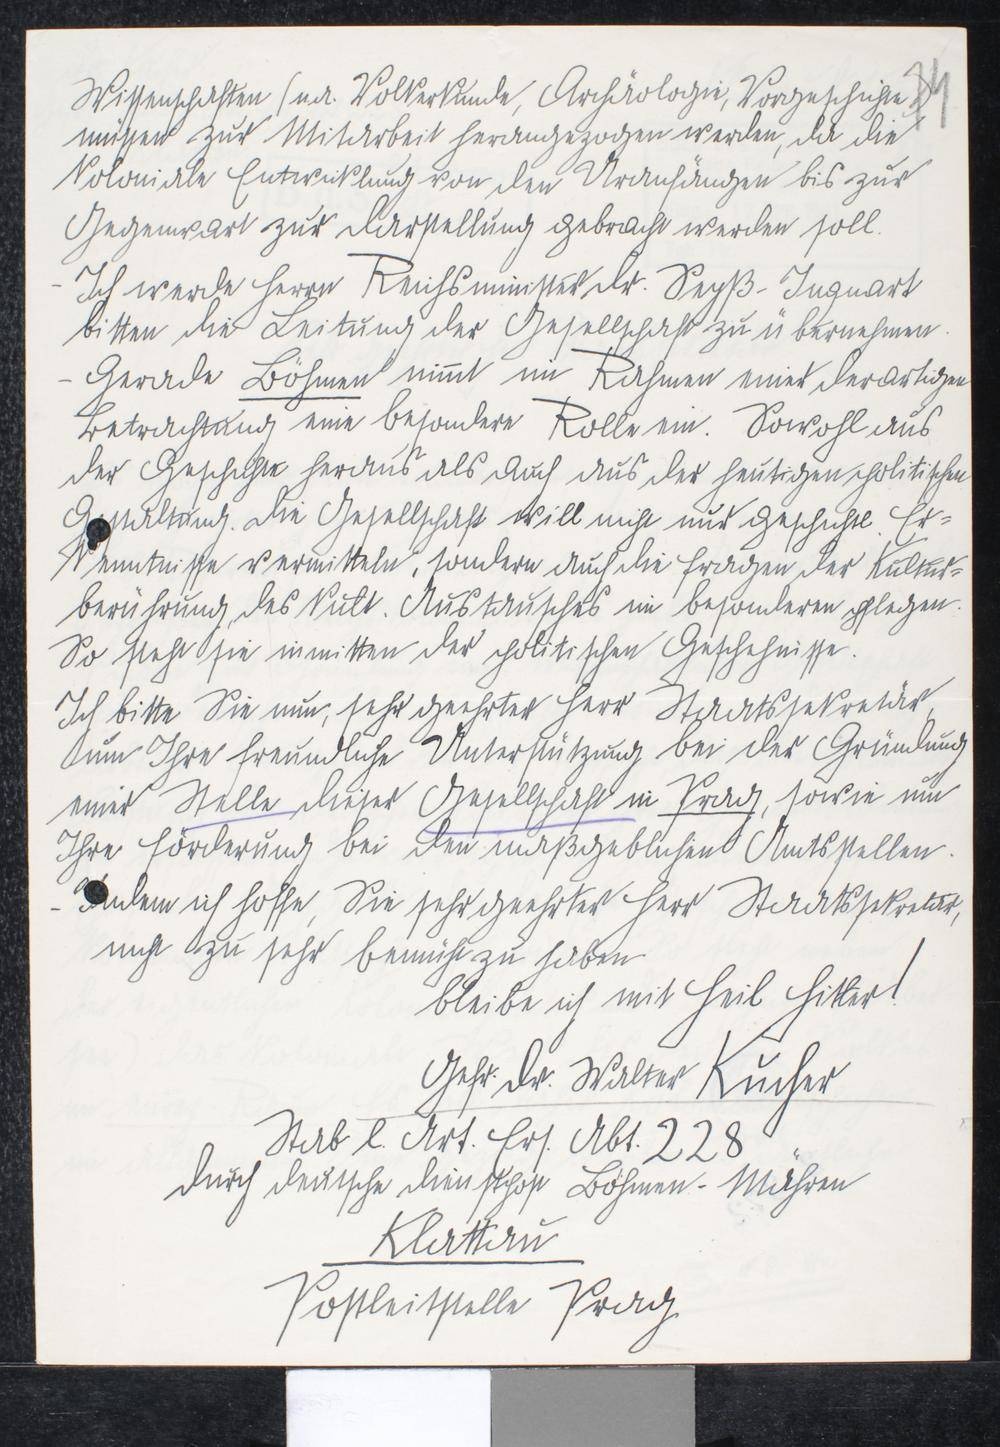 Wissenschaften (u.a. Völkerkunde, Archäologie, Vorgeschichte)
müssen zur Mitarbeit herangezogen werden, da die
koloniale Entwicklung von den Uranfängen bis zur
Gegenwart zur Darstellung gebracht werden soll.
- Ich werde Herrn Reichsminister Dr. Seyß-Inquart
bitten die Leitung der Gesellschaft zu übernehmen.
- Gerade Böhmen nimt im Rahmen einer derartigen
Betrachtung eine besondere Rolle ein. Sowohl aus
der Geschichte heraus als auch aus der heutigen politischen
Gestaltung. Die Gesellschaft will nicht nur geschichtl. Er=
kenntnisse vermitteln, sondern auch die Fragen der Kultur=
berührung, des kult. Austausches im besonderen pflegen.
So steht sie inmitten der politischen Geschehnisse.
Ich bitte Sie nun, sehr geehrter Herr Staatssekretär,
um Ihre freundliche Unterstützung bei der Gründung
einer Stelle dieser Gesellschaft in Prag, sowie um
Ihre Förderung bei den maßgeblichen Amtsstellen.
- Indem ich hoffe, Sie sehr geehrter Herr Staatssekretär,
nicht zu sehr bemüht zu haben
bleibe ich mit Heil Hitler!
Gefr. Dr. Walter Kucher
Stab l. Art. Ers. Abt. 228
durch deutsche Dienstpost Böhmen-Mähren
Klattau
Postleitstelle Prag